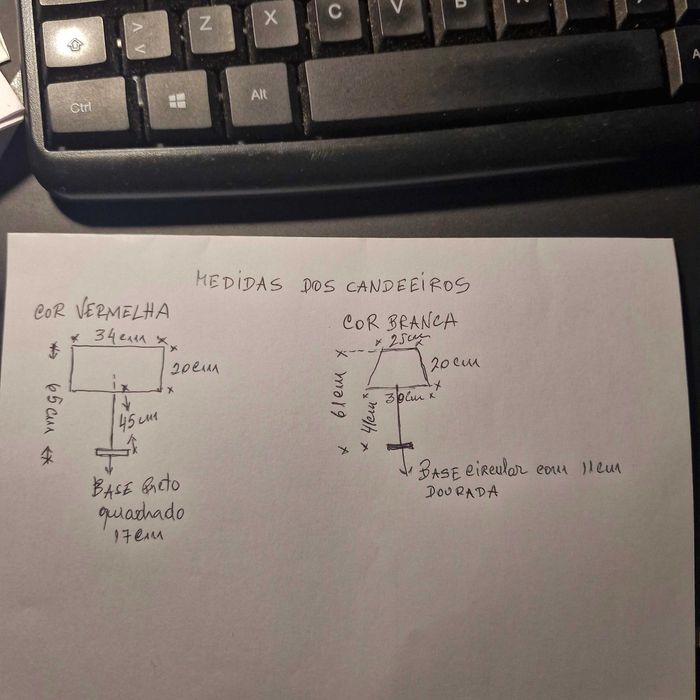 >
<
Z
X
C
V
Ctrl
Alt
MEDIDAS DOS CANDEEIROS
COR VERMELHA
34cm
20cm
65cm
45cm
BASE Preto
quadrado
17cm
COR BRANCA
25cm
20cm
61cm
41cm
30cm
BASE circular com 11cm
DOURADA